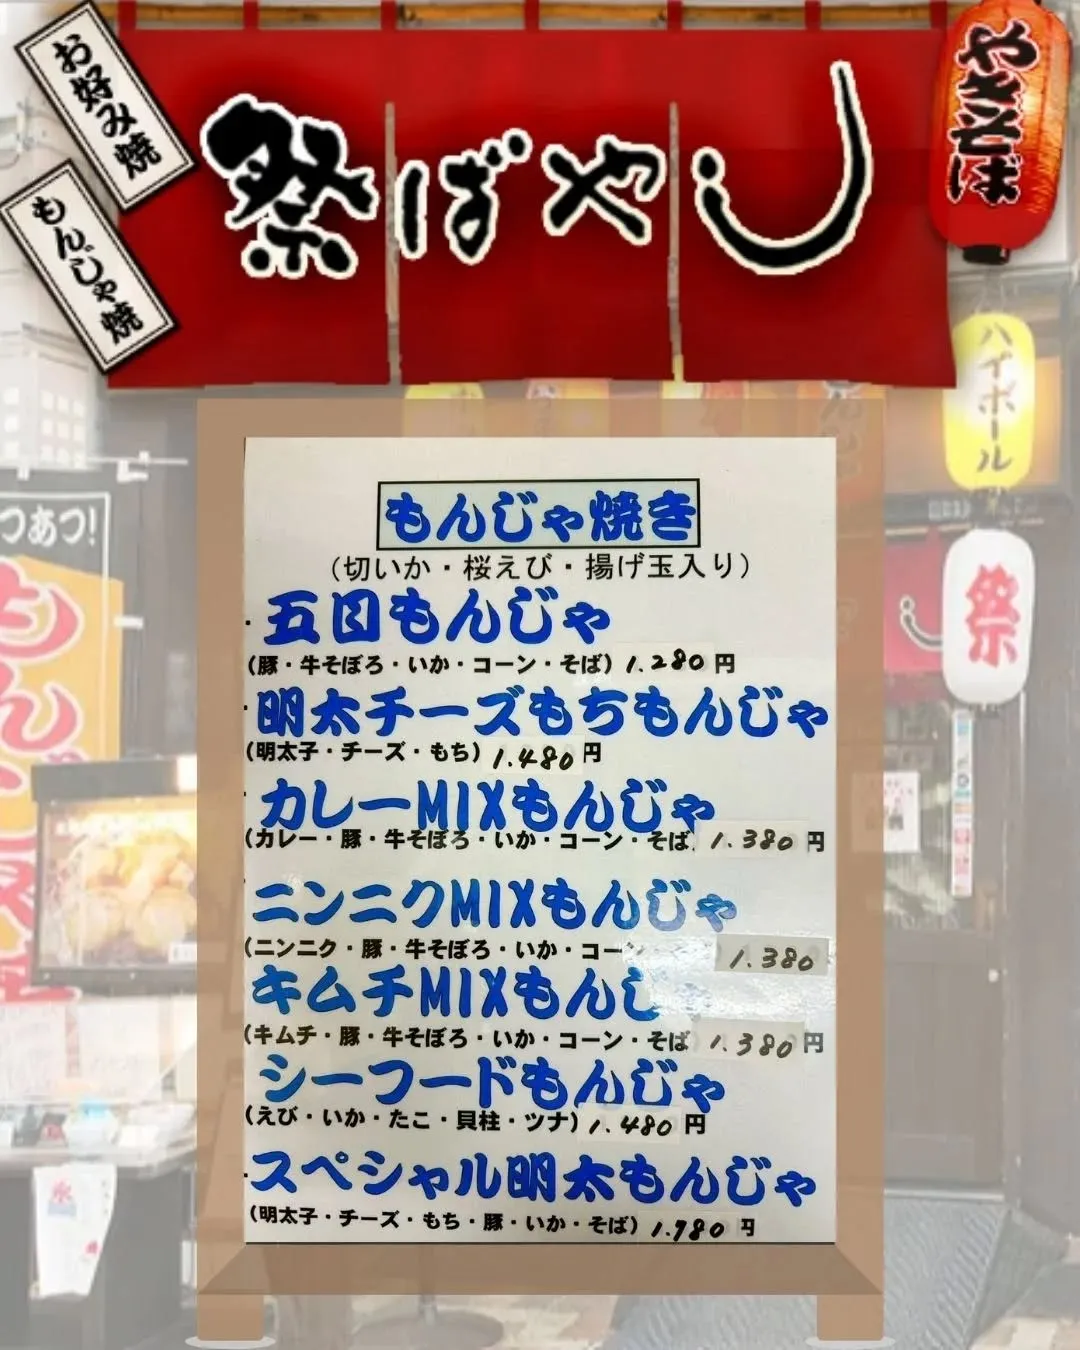 お好み焼
もんじゃ焼
祭ばやし
やきそば
ハイボール
祭
つあつ!
もんじゃ焼き
(切いか・桜えび・揚げ玉入り)
・五目もんじゃ
(豚・牛そぼろ・いか・コーン・そば) 1.280円
・明太チーズもちもんじゃ
(明太子・チーズ・もち) 1.480円
カレーMIXもんじゃ
(カレー・豚・牛そぼろ・いか・コーン・そば 1.380円
ニンニクMIXもんじゃ
(ニンニク・豚・牛そぼろ・いか・コーン 1.380
キムチMIXもんじ
(キムチ・豚・牛そぼろ・いか・コーン・そば 1.380円
シーフードもんじゃ
(えび・いか・たこ・貝柱・ツナ) 1.480円
・スペシャル明太もんじゃ
(明太子・チーズ・もち・豚・いか・そば) 1.780円
氷